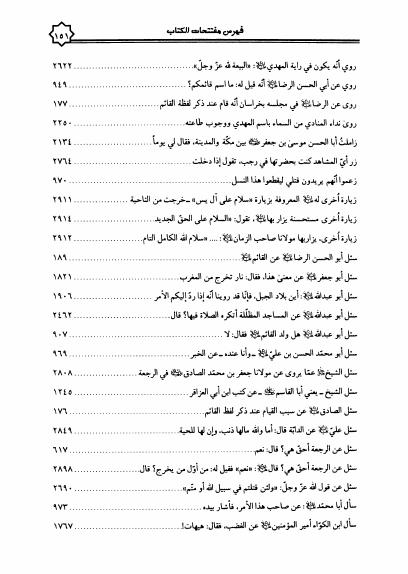 فهرس مفتتحات الكتاب
١٥١
روي أنّه يكون في راية المهدي: «البيعة لله عزّ وجلّ» ٢٦٢٢
روي عن أبي الحسن الرضا أنّه قيل له: ما اسم قائمكم؟ ٩٤٩
روى عن الرضا في مجلسه بخراسان أنّه قام عند ذكر لفظة القائم ١٧٧
روى نداء المنادي من السماء باسم المهدي ووجوب طاعته ٢٢٥٠
زاملتُ أبا الحسن موسىٰ بن جعفر بين مكّة والمدينة، فقال لي يوماً ٢١٣٤
زر أيّ المشاهد كنت بحضرتها في رجب، تقول إذا دخلت ٢٧٦٤
زعموا أنّهم يريدون قتلي ليقطعوا هذا النسل ٩٧٠
زيارة أخرى له المعروفة بزيارة «سلام على آل يس» ـ خرجت من الناحية ٢٩١١
زيارة أخرى مستحسنة يزار بها، تقول: «السلام على الحقّ الجديد ٢٩١٤
زيارة أخرى، يزاربها مولانا صاحب الزمان: ... «سلام الله الكامل التام ٢٩١٢
سئل أبو الحسن الرضا عن القائم ١٨٩
سئل أبو جعفر عن معنىٰ هذا، فقال: نار تخرج من المغرب ١٨٢١
سئل أبو عبدالله: أين بلاد الجبل، فإنّا قد روينا أنّه إذا ردّ إليكم الأمر ١٩٠٦
سئل أبو عبدالله عن المساجد المظلّلة أتكره الصلاة فيها؟ قال ٢٤٦٢
سئل أبو عبدالله هل ولد القائم فقال: لا ٩٠٧
سئل أبو محمّد الحسن بن علي ـ وأنا عنده ـ عن الخبر ٩٦٩
سئل الشيخ عمّا يروى عن مولانا جعفر بن محمد الصادق في الرجعة ٢٨٠٨
سئل الشيخ ـ يعني أبا القاسم ـ عن كتب ابن أبي العزاقر ١٢٤٥
سئل الصادق عن سبب القيام عند ذكر لفظ القائم ١٧٦
سئل عليّ عن الدابّة قال: أما والله مالها ذنب، وإن لها للحية ٢٨٤٩
سئل عن الرجعة أحقّ هي؟ قال: نعم ٦١٧
سئل عن الرجعة أحقّ هي؟ قال: «نعم» فقيل له: من أوّل من يخرج؟ قال ٢٨٩٨
سئل عن قول الله عزّ وجلّ: «ولئن قتلتم في سبيل الله أو متّم» ٢٦٩٠
سأل أبا محمد: عن صاحب هذا الأمر، فأشار بيده ٩٧٣
سأل ابن الكوّاء أمير المؤمنين عن الغضب، فقال: هيهات! ١٧٦٧